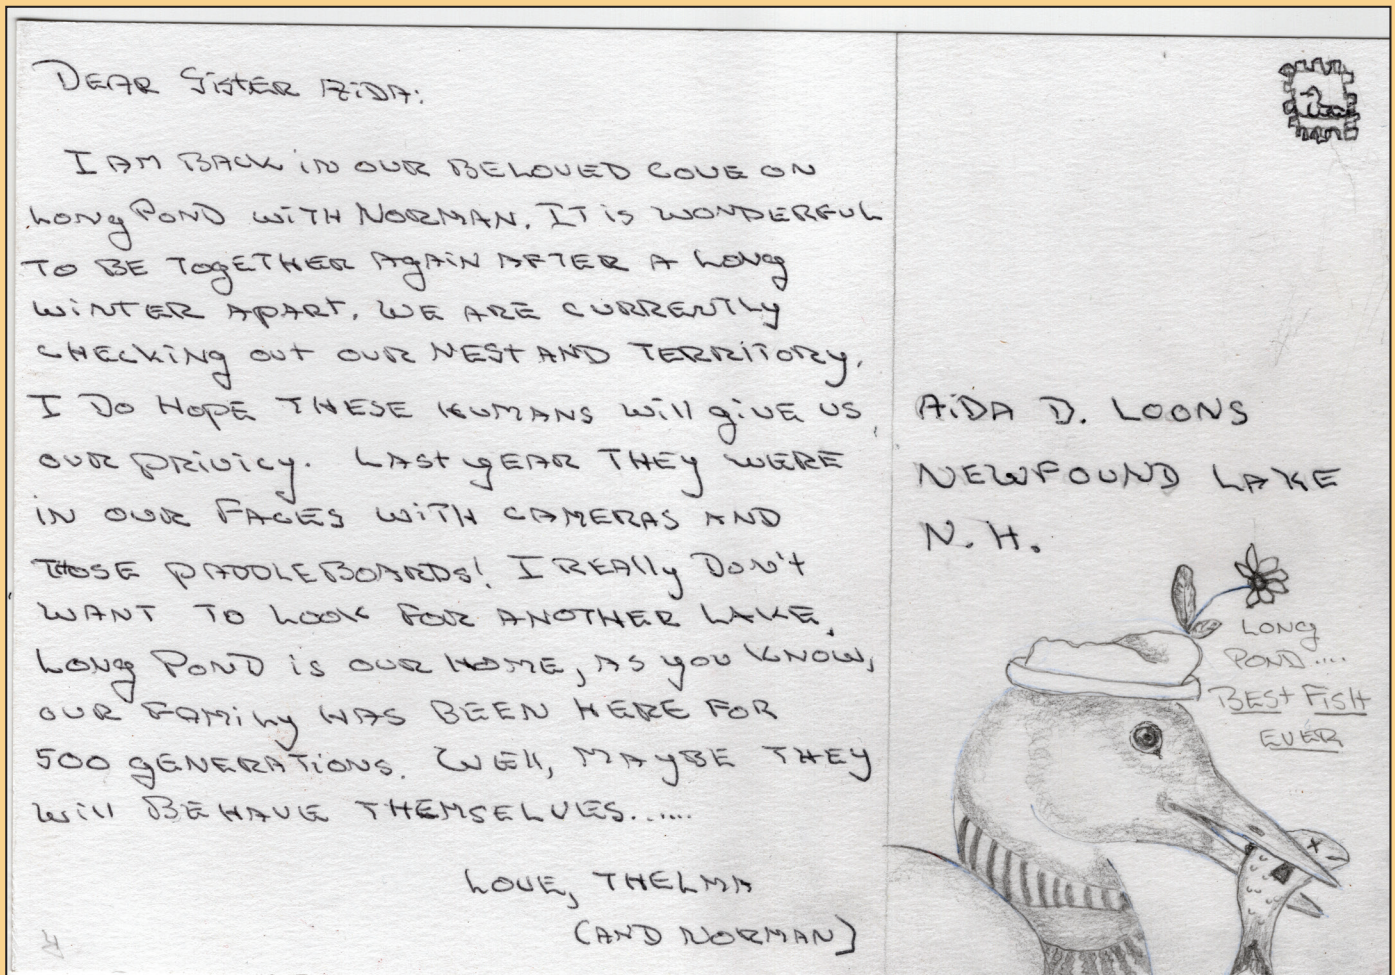 DEAR SISTER AIDA:
I AM BACK IN OUR BELOVED COVE ON
LONG POND WITH NORMAN. IT IS WONDERFUL
TO BE TOGETHER AGAIN AFTER A LONG
WINTER APART. WE ARE CURRENTLY
CHECKING OUT OUR NEST AND TERRITORY.
I DO HOPE THESE HUMANS WILL GIVE US
OUR PRIVICY. LAST YEAR THEY WERE
IN OUR FACES WITH CAMERAS AND
THOSE PADDLEBOARDS! I REALLY DON'T
WANT TO LOOK FOR ANOTHER LAKE.
LONG POND IS OUR HOME, AS YOU KNOW,
OUR FAMILY HAS BEEN HERE FOR
500 GENERATIONS. WELL, MAYBE THEY
WILL BEHAVE THEMSELVES......
LOVE, THELMA
(AND NORMAN)
AIDA D. LOONS
NEWFOUND LAKE
N. H.
LONG
POND....
BEST FISH
EVER